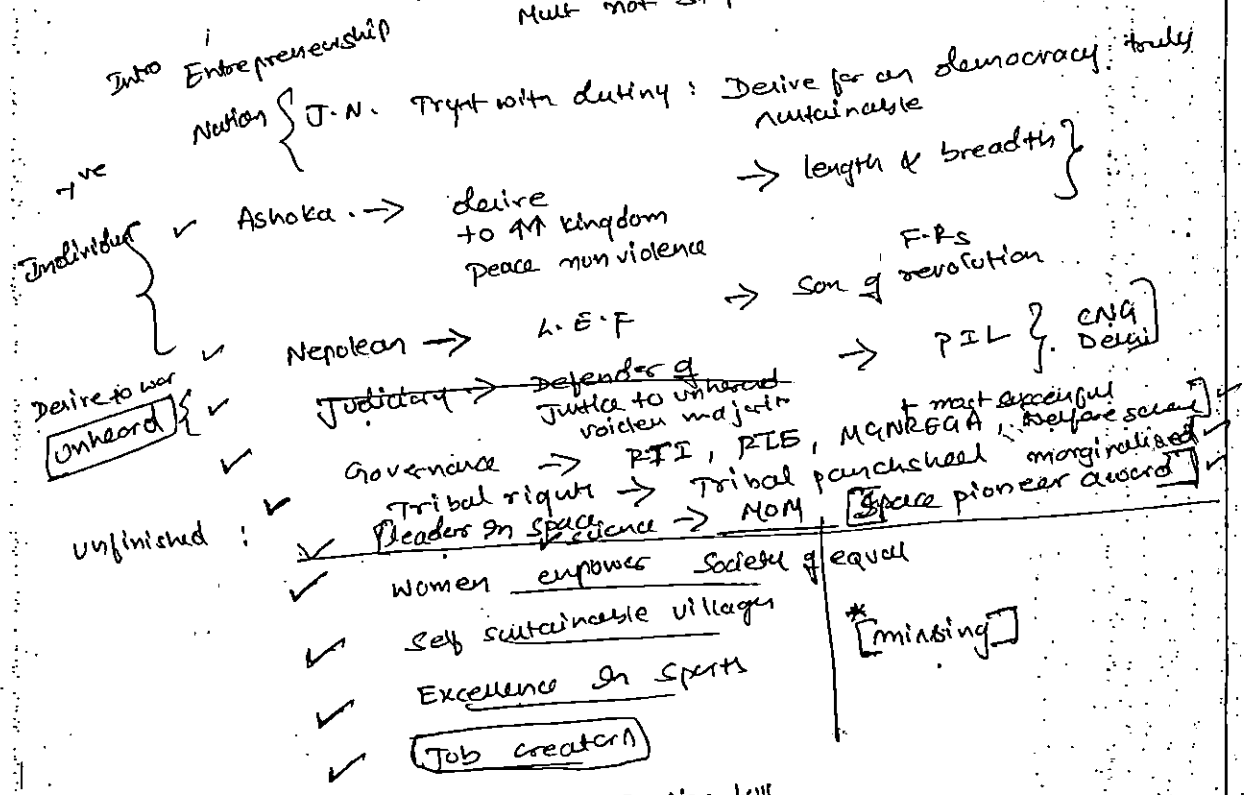 Mult not
Intro Entrepreneurship
Nation { J.N. Tryst with dutiny : Desire for an democracy truly
sustainable
+ve
→ length & breadth }
Individual { ✓ Ashoka. → desire
to ↑↑ kingdom
peace non violence
F.Rs
✓ Nepolean → L.E.F → Son of revolution
Desire to war
Unheard { ✓ Judiciary → Defender of → PIL { CNG
Delhi ]
Justice to unheard
voiclen majorit
✓ Governance → RTI, RTE, MGNREGA, Welfare scheme] ✓
+ most successful
✓ Tribal right → Tribal panchsheel marginalised ✓
unfinished : ✓ leader in space science → MOM, [Space pioneer award] ✓
✓ women empower Society of equal
✓ Self sustainable villages
*[missing]
✓ Excellence in Sports
✓ Job creators